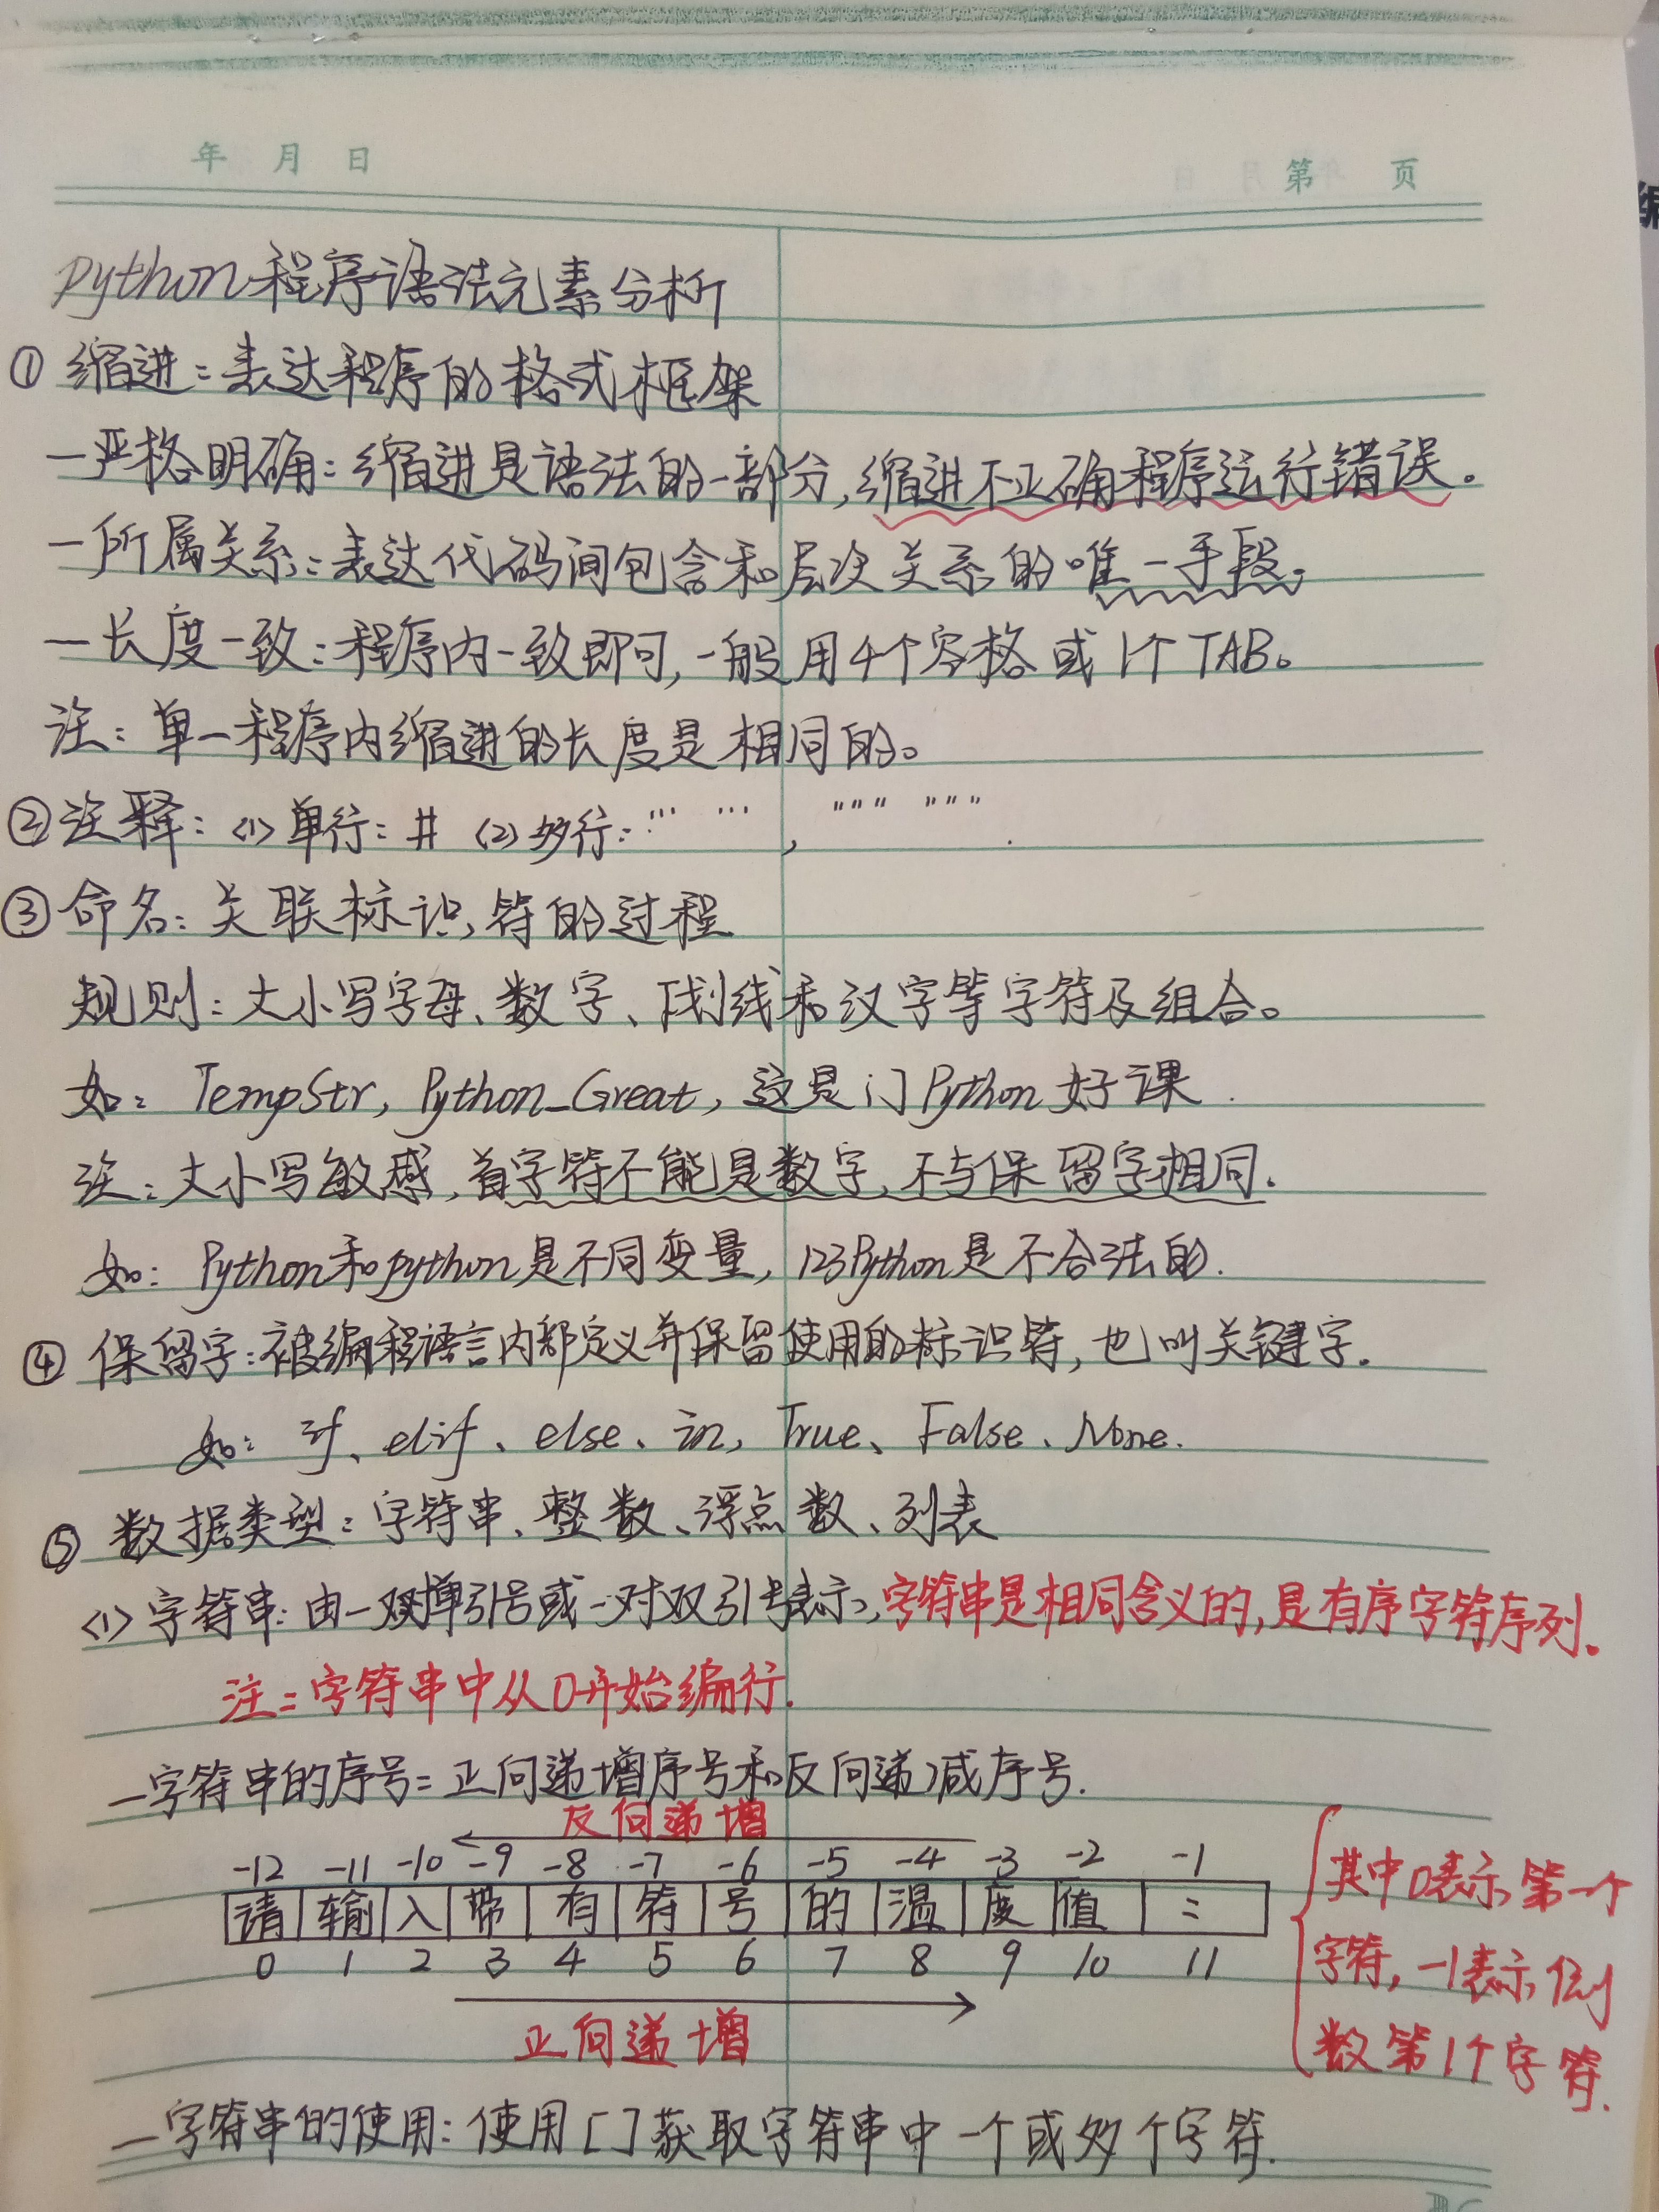 年 月 日 第 页
Python程序语法元素分析
① 缩进：表达程序的格式框架
—严格明确：缩进是语法的一部分，缩进不正确程序运行错误。
—所属关系：表达代码间包含和层次关系的唯一手段。
—长度一致：程序内一致即可，一般用4个空格或1个TAB。
注：单一程序内缩进的长度是相同的。
②注释：<1>单行：# <2>多行：''' ''' ， """ """ .
③命名：关联标识符的过程
规则：大小写字母、数字、下划线和汉字等字符及组合。
如：TempStr，Python_Great，这是门Python好课.
注：大小写敏感，首字符不能是数字，不与保留字相同.
如：Python和python是不同变量，123Python是不合法的.
④ 保留字：被编程语言内部定义并保留使用的标识符，也叫关键字.
如：if、elif、else、in，True、False、None.
⑤ 数据类型：字符串、整数、浮点数、列表
<1>字符串：由一对单引号或一对双引号表示，字符串是相同含义的，是有序字符序列。
注：字符串中从0开始编行.
—字符串的序号：正向递增序号和反向递减序号.
反向递增
-12 -11 -10 -9 -8 -7 -6 -5 -4 -3 -2 -1
请 输 入 带 有 符 号 的 温 度 值 ：
0 1 2 3 4 5 6 7 8 9 10 11
正向递增
其中0表示第一个
字符，-1表示倒
数第1个字符.
—字符串的使用：使用[]获取字符串中一个或多个字符.